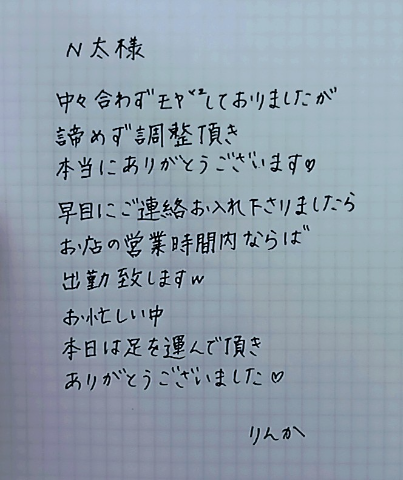 N太様
中々合わずモヤ×2しておりましたが
諦めず調整頂き
本当にありがとうございます♡
早目にご連絡お入れ下さりましたら
お店の営業時間内ならば
出勤致しますw
お忙しい中
本日は足を運んで頂き
ありがとうございました♡
りんか